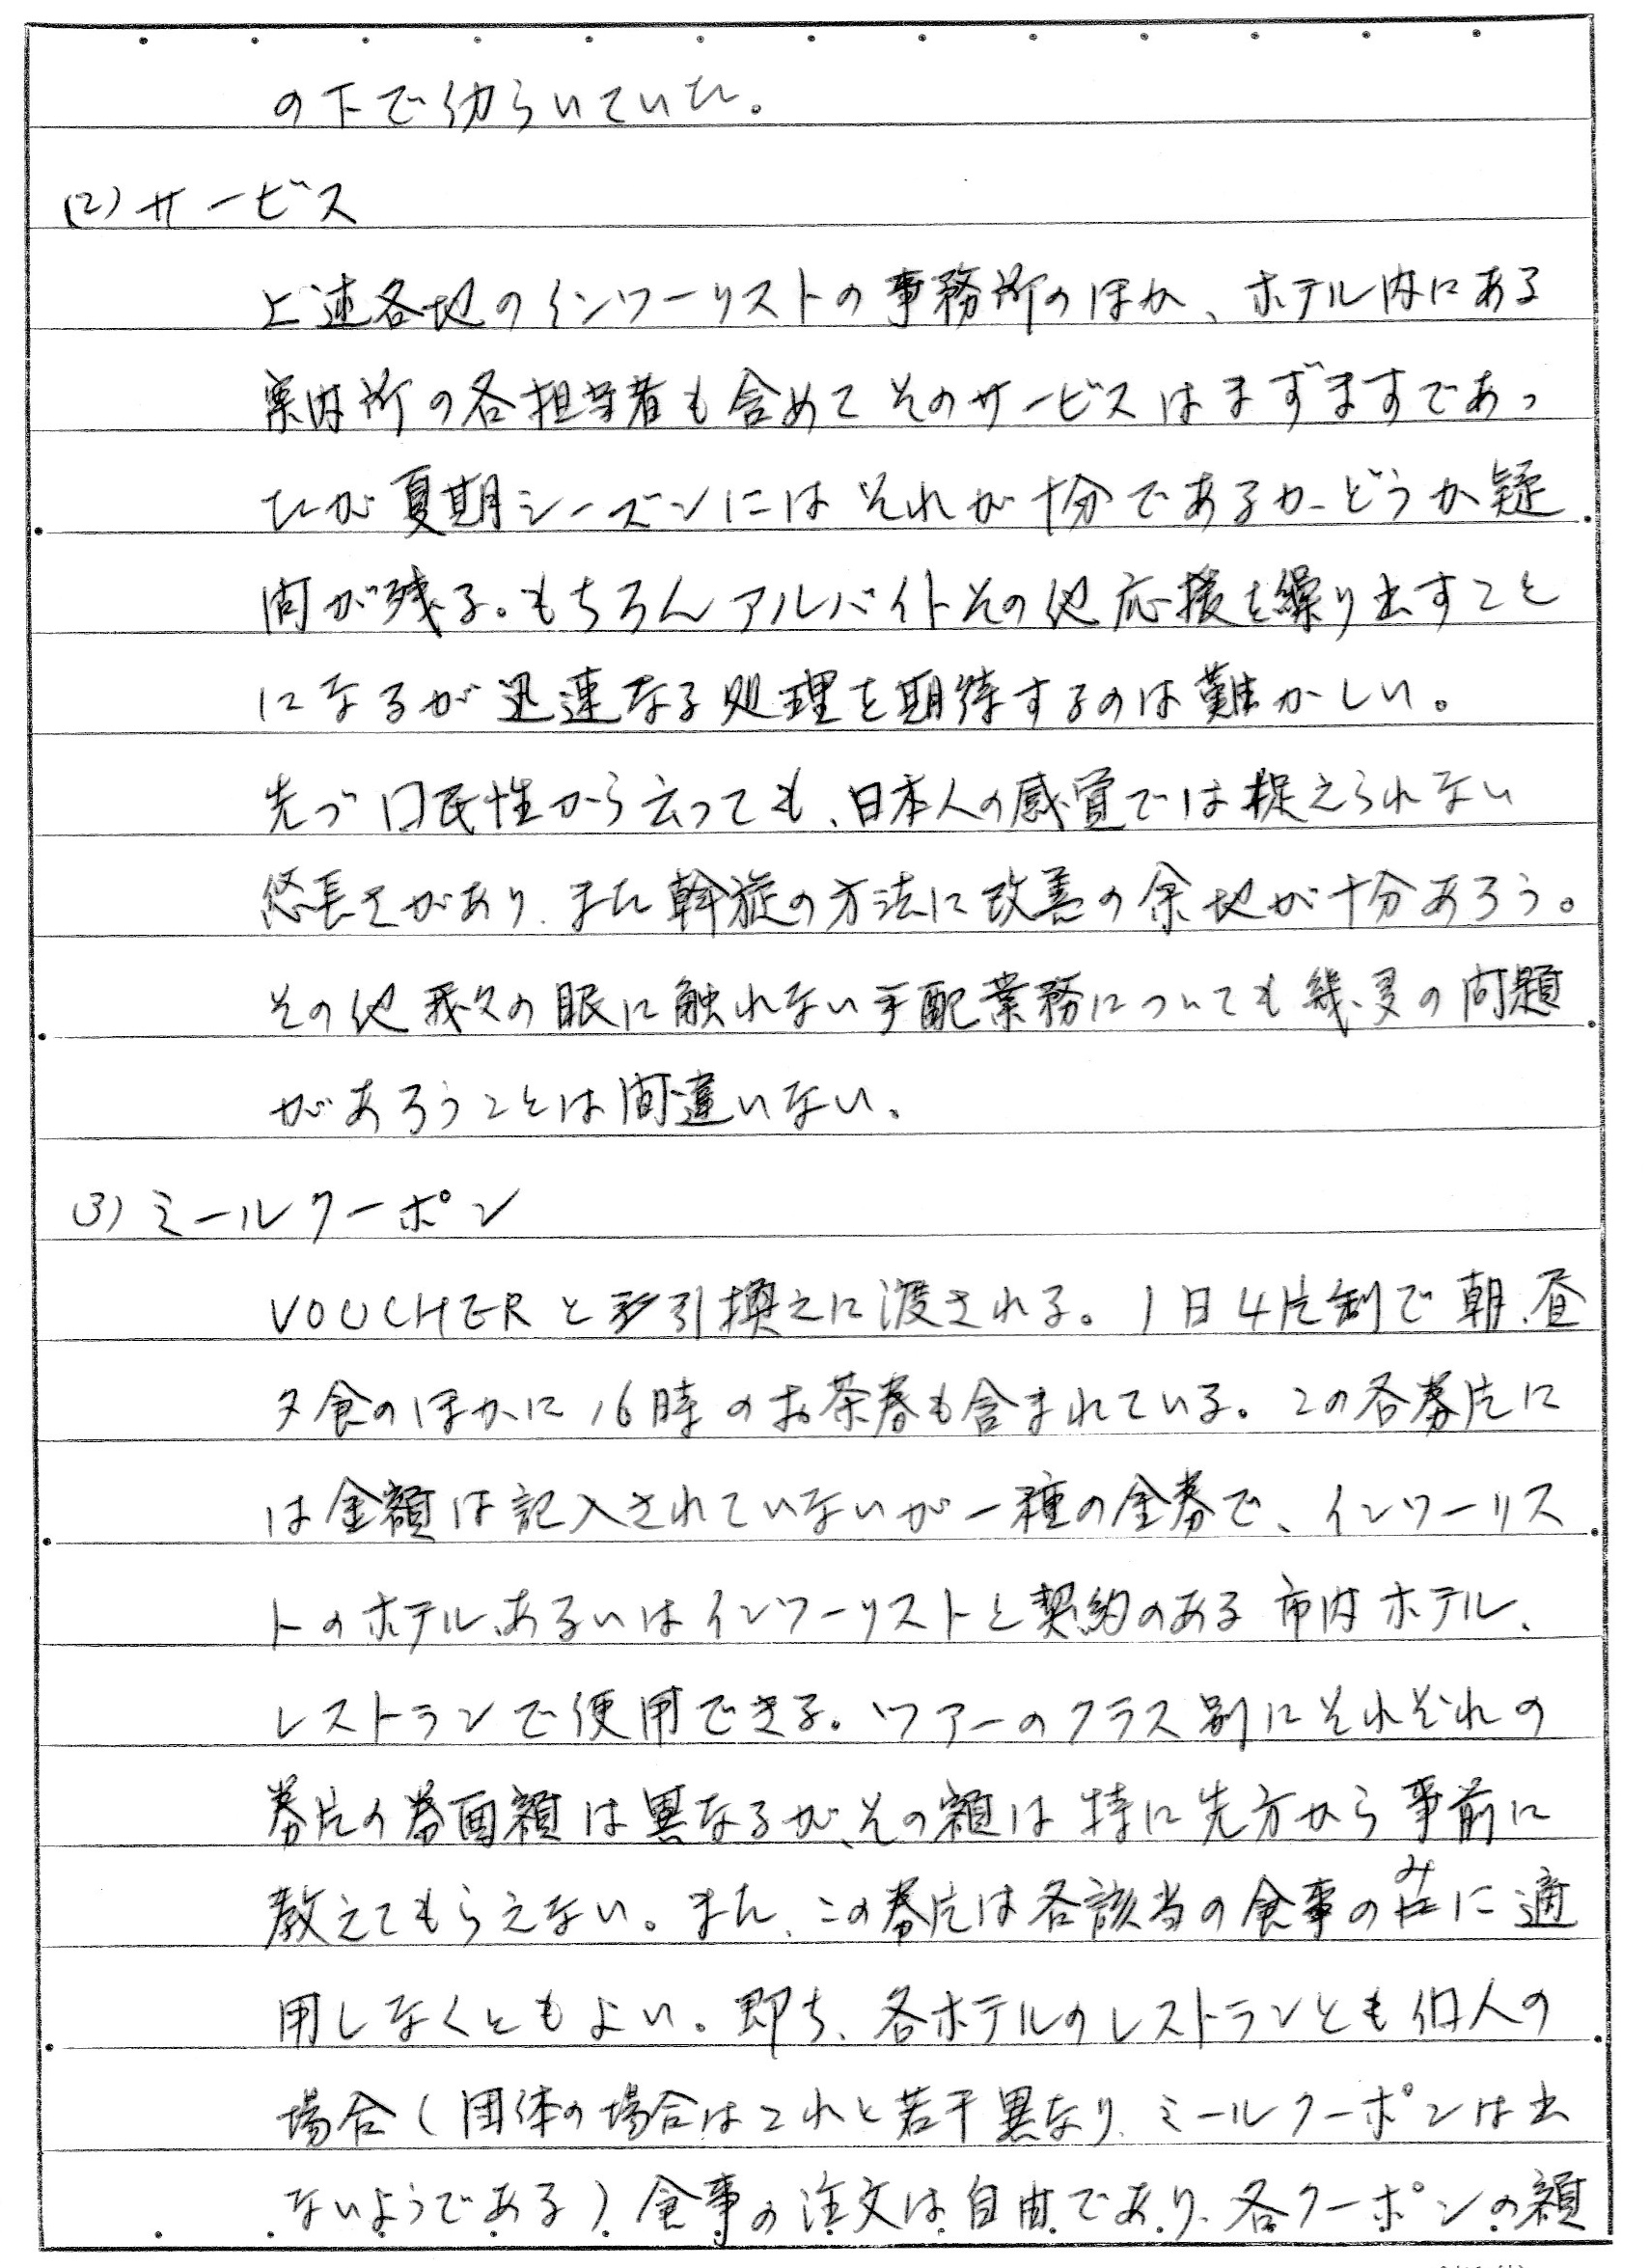 の下で仂らいていた。
(2) サービス
上述各地のインツーリストの事務所のほか、ホテル内にある
案内所の各担当者も含めてそのサービスはまずますであっ
たが夏期シーズンにはそれが十分であるかどうか疑
問が残る。もちろんアルバイトその他応援を繰り出すこと
になるが迅速なる処理を期待するのは難かしい。
先づ国民性から云っても、日本人の感覚では捉えられない
悠長さがあり、また斡旋の方法に改善の余地が十分あろう。
その他我々の眼に触れない手配業務についても幾多の問題
があろうことは間違いない。
(3) ミールクーポン
VOUCHERと引換えに渡される。1日4片制で朝、昼
夕食のほかに16時のお茶券も含まれている。この各券片に
は金額は記入されていないが一種の金券で、インツーリス
トのホテル、あるいはインツーリストと契約のある市内ホテル、
レストランで使用できる。ツアーのクラス別にそれぞれの
券片の券面額は異なるが、その額は特に先方から事前に
教えてもらえない。また、この券片は各該当の食事のみに適
用しなくともよい。即ち、各ホテルのレストランとも個人の
場合(団体の場合はこれと若干異なり、ミールクーポンは出
ないようである)食事の注文は自由であり、各クーポンの額